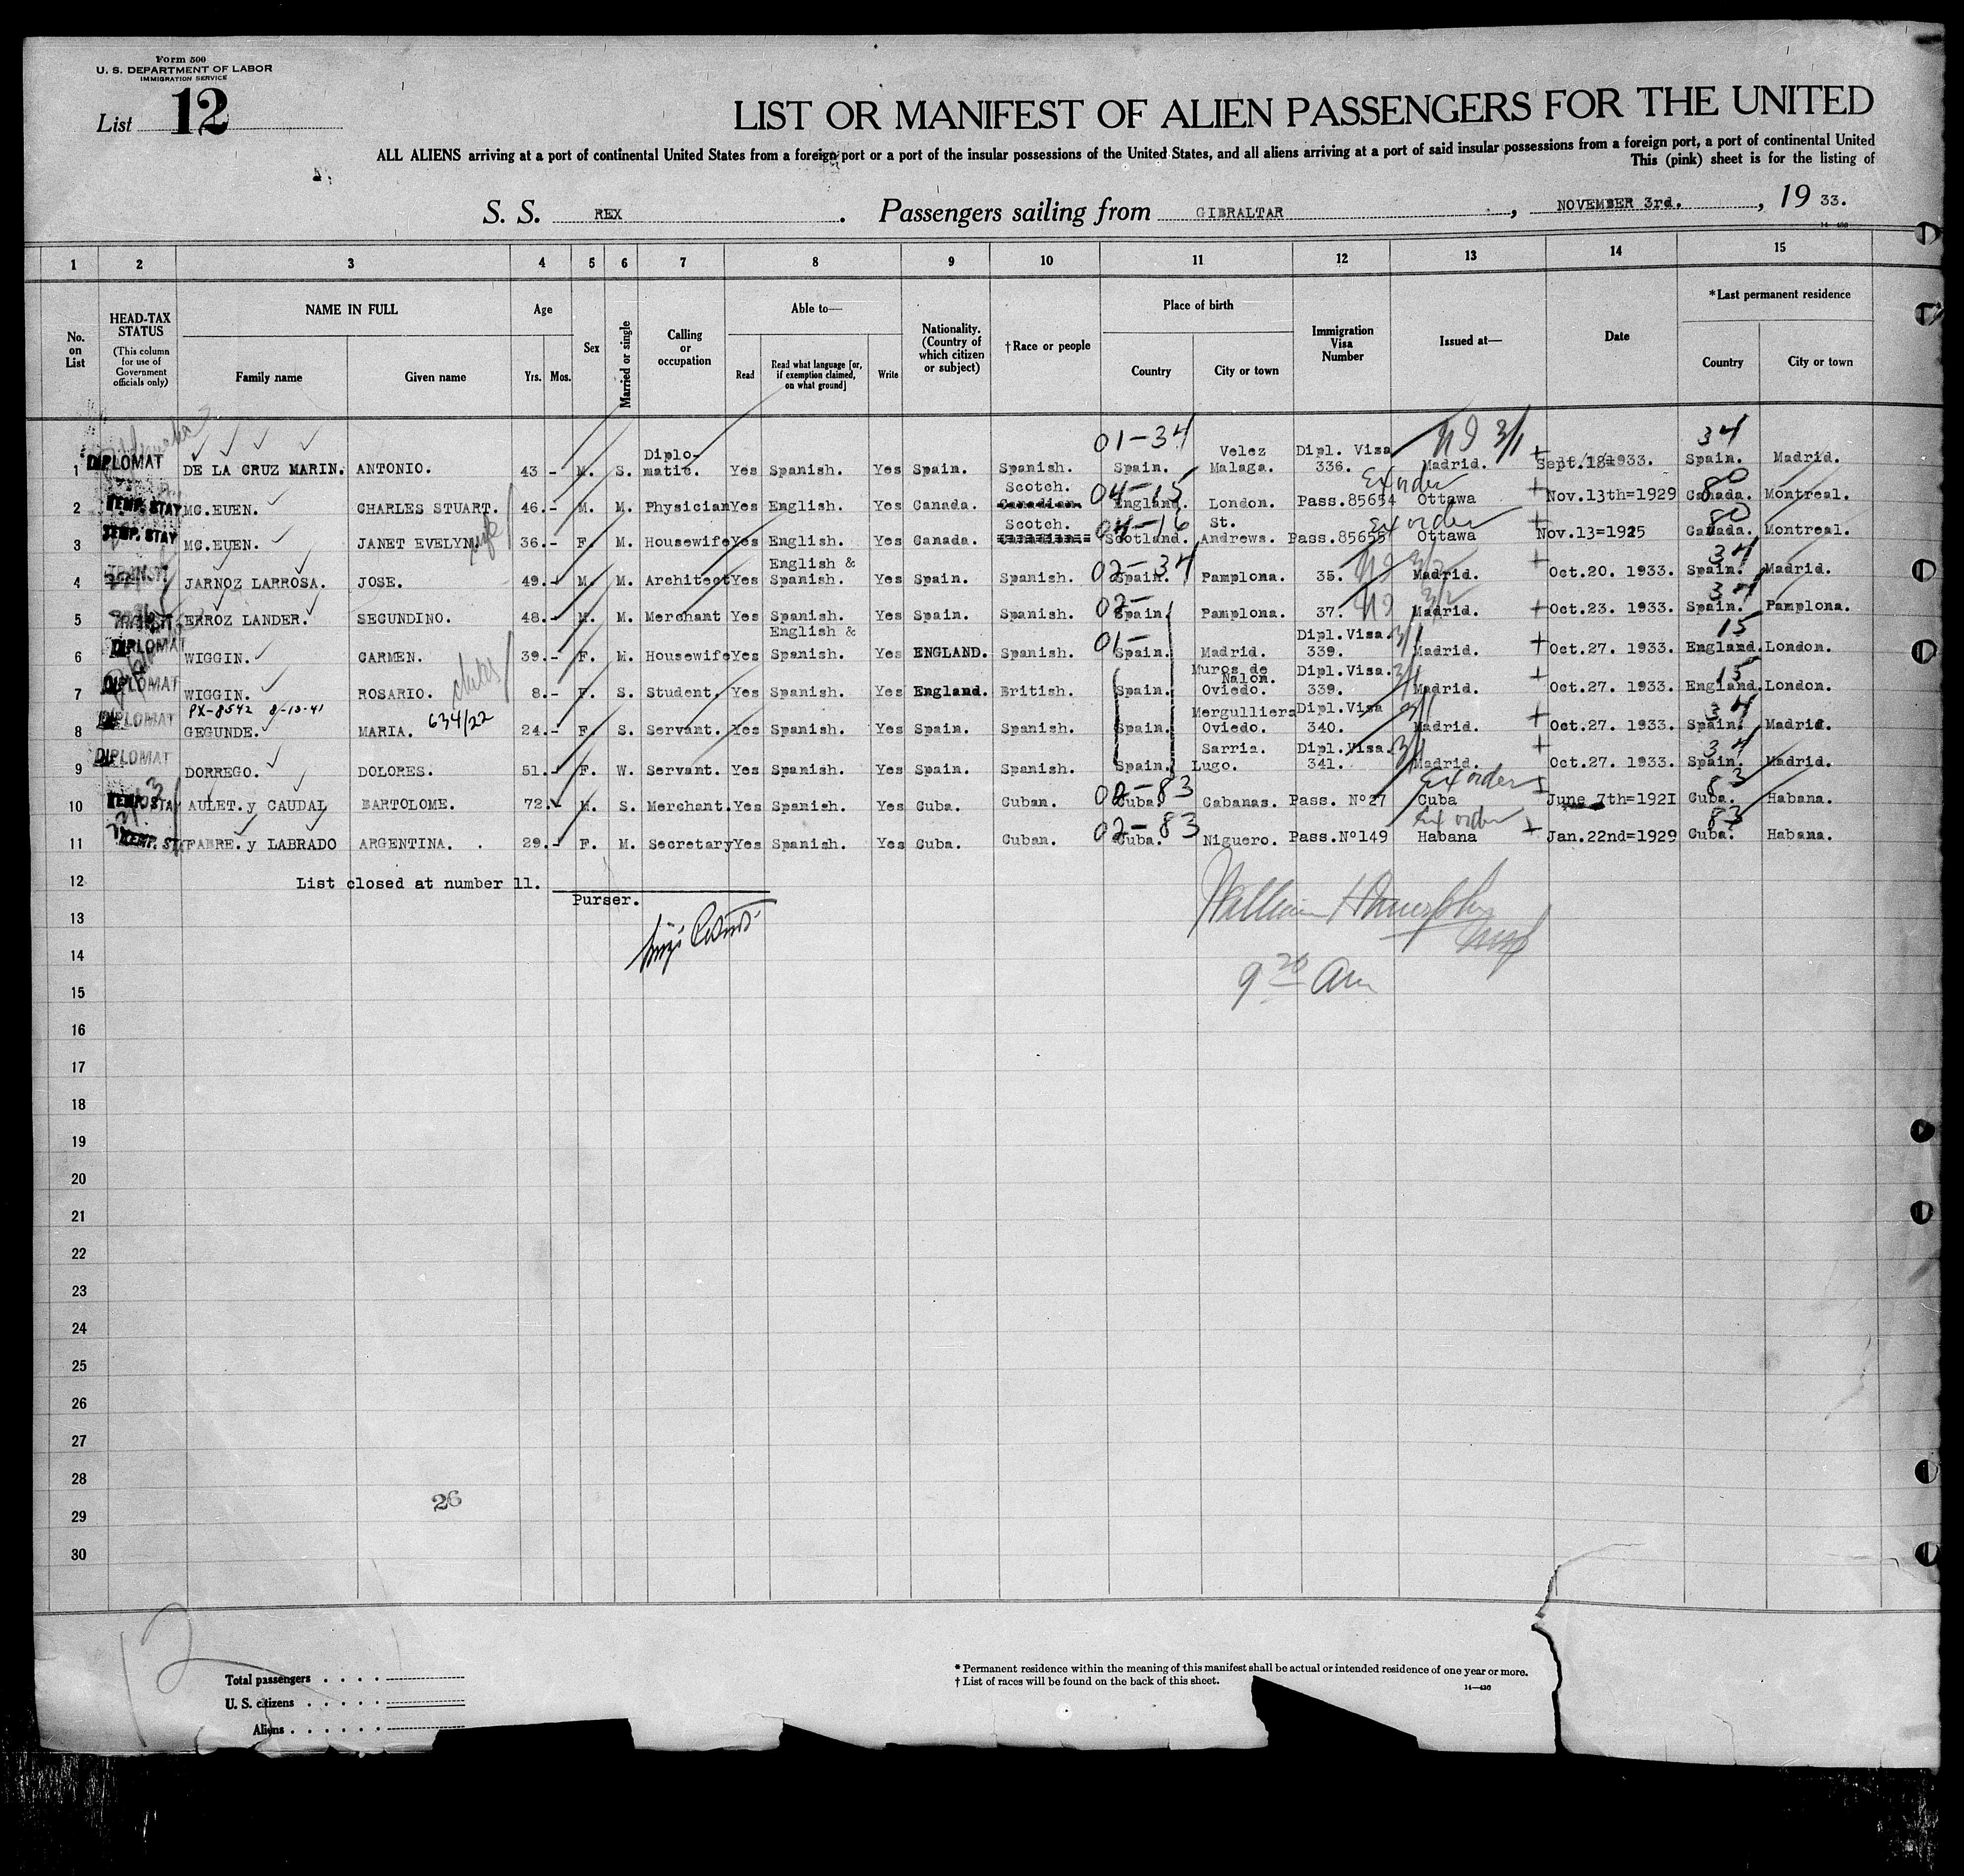 Form 500
U. S. DEPARTMENT OF LABOR
IMMIGRATION SERVICE
List 12
LIST OR MANIFEST OF ALIEN PASSENGERS FOR THE UNITED
ALL ALIENS arriving at a port of continental United States from a foreign port or a port of the insular possessions of the United States, and all aliens arriving at a port of said insular possessions from a foreign port, a port of continental United
This (pink) sheet is for the listing of
S. S. REX. Passengers sailing from GIBRALTAR, NOVEMBER 3rd., 19 33.
14—430
1 2 3 4 5 6 7 8 9 10 11 12 13 14 15
No. on List
HEAD-TAX STATUS
(This column for use of Government officials only)
NAME IN FULL
Family name Given name
Age
Yrs. Mos.
Sex
Married or single
Calling or occupation
Able to—
Read Read what language [or, if exemption claimed, on what ground] Write
Nationality. (Country of which citizen or subject)
†Race or people
Place of birth
Country City or town
Immigration Visa Number
Issued at—
Date
*Last permanent residence
Country City or town
1 DIPLOMAT DE LA CRUZ MARIN. ANTONIO. 43 - M. S. Diplo-matic. Yes Spanish. Yes Spain. Spanish. 01-34 Spain. Velez Malaga. Dipl. Visa 336. Madrid. 3/1 Sept. 1933. 34 Spain. Madrid.
2 TEMP. STAY MC.EUEN. CHARLES STUART. 46.- M. M. Physician Yes English. Yes Canada. Scotch. Canadian. 04-15 England. London. Pass.85654 Ex order Ottawa Nov.13th=1929 80 Canada. Montreal.
3 TEMP. STAY MC.EUEN. JANET EVELYN. wife 36.- F. M. Housewife Yes English. Yes Canada. Scotch. 04-16 Scotland. St. Andrews. Pass.85655 Ex order Ottawa Nov.13=1925 80 Canada. Montreal.
4 TRANSIT JARNOZ LARROSA. JOSE. 49.- M. M. Architect Yes English & Spanish. Yes Spain. Spanish. 02-34 Spain. Pamplona. 35. 3/2 Madrid. Oct.20. 1933. 34 Spain. Madrid.
5 ERROZ LANDER. SECUNDINO. 48.- M. M. Merchant Yes Spanish. Yes Spain. Spanish. 02- Spain. Pamplona. 37. 3/2 Madrid. Oct.23. 1933. 34 Spain. Pamplona.
6 DIPLOMAT WIGGIN. CARMEN. 39.- F. M. Housewife Yes English & Spanish. Yes ENGLAND. Spanish. 01- Spain. Madrid. Dipl.Visa. 339. 3/1 Madrid. Oct.27. 1933. 15 England. London.
7 DIPLOMAT WIGGIN. ROSARIO. 8.- F. S. Student. Yes Spanish. Yes England. British. Spain. Muros de Nalon. Oviedo. Dipl.Visa. 339. 3/1 Madrid. Oct.27. 1933. 15 England. London.
PX-8542 8-13-41
8 DIPLOMAT GEGUNDE. MARIA. 634/22 24.- F. S. Servant. Yes Spanish. Yes Spain. Spanish. Spain. Mergulliers Oviedo. Dipl.Visa 340. 3/1 Madrid. Oct.27. 1933. 34 Spain. Madrid.
9 DIPLOMAT DORREGO. DOLORES. 51.- F. W. Servant. Yes Spanish. Yes Spain. Spanish. Spain. Sarria. Lugo. Dipl.Visa. 341. 3/1 Madrid. Oct.27. 1933. 34 Spain. Madrid.
10 TEMP. STAY AULET. y CAUDAL BARTOLOME. 72.- M. S. Merchant. Yes Spanish. Yes Cuba. Cuban. 02-83 Cuba. Cabanas. Pass. Nº27 Ex order Cuba June 7th=1921 83 Cuba. Habana.
11 TEMP. STAY FABRE. y LABRADO ARGENTINA. 29.- F. M. Secretary Yes Spanish. Yes Cuba. Cuban. 02-83 Cuba. Niguero. Pass.Nº149 Ex order Habana Jan.22nd=1929 83 Cuba. Habana.
12 List closed at number 11.
Purser.
13 William H Murphy
14
9 20 Am
15
16
17
18
19
20
21
22
23
24
25
26
27
28
26
29
30
12
Total passengers
U. S. citizens
Aliens
* Permanent residence within the meaning of this manifest shall be actual or intended residence of one year or more.
† List of races will be found on the back of this sheet.
14—430